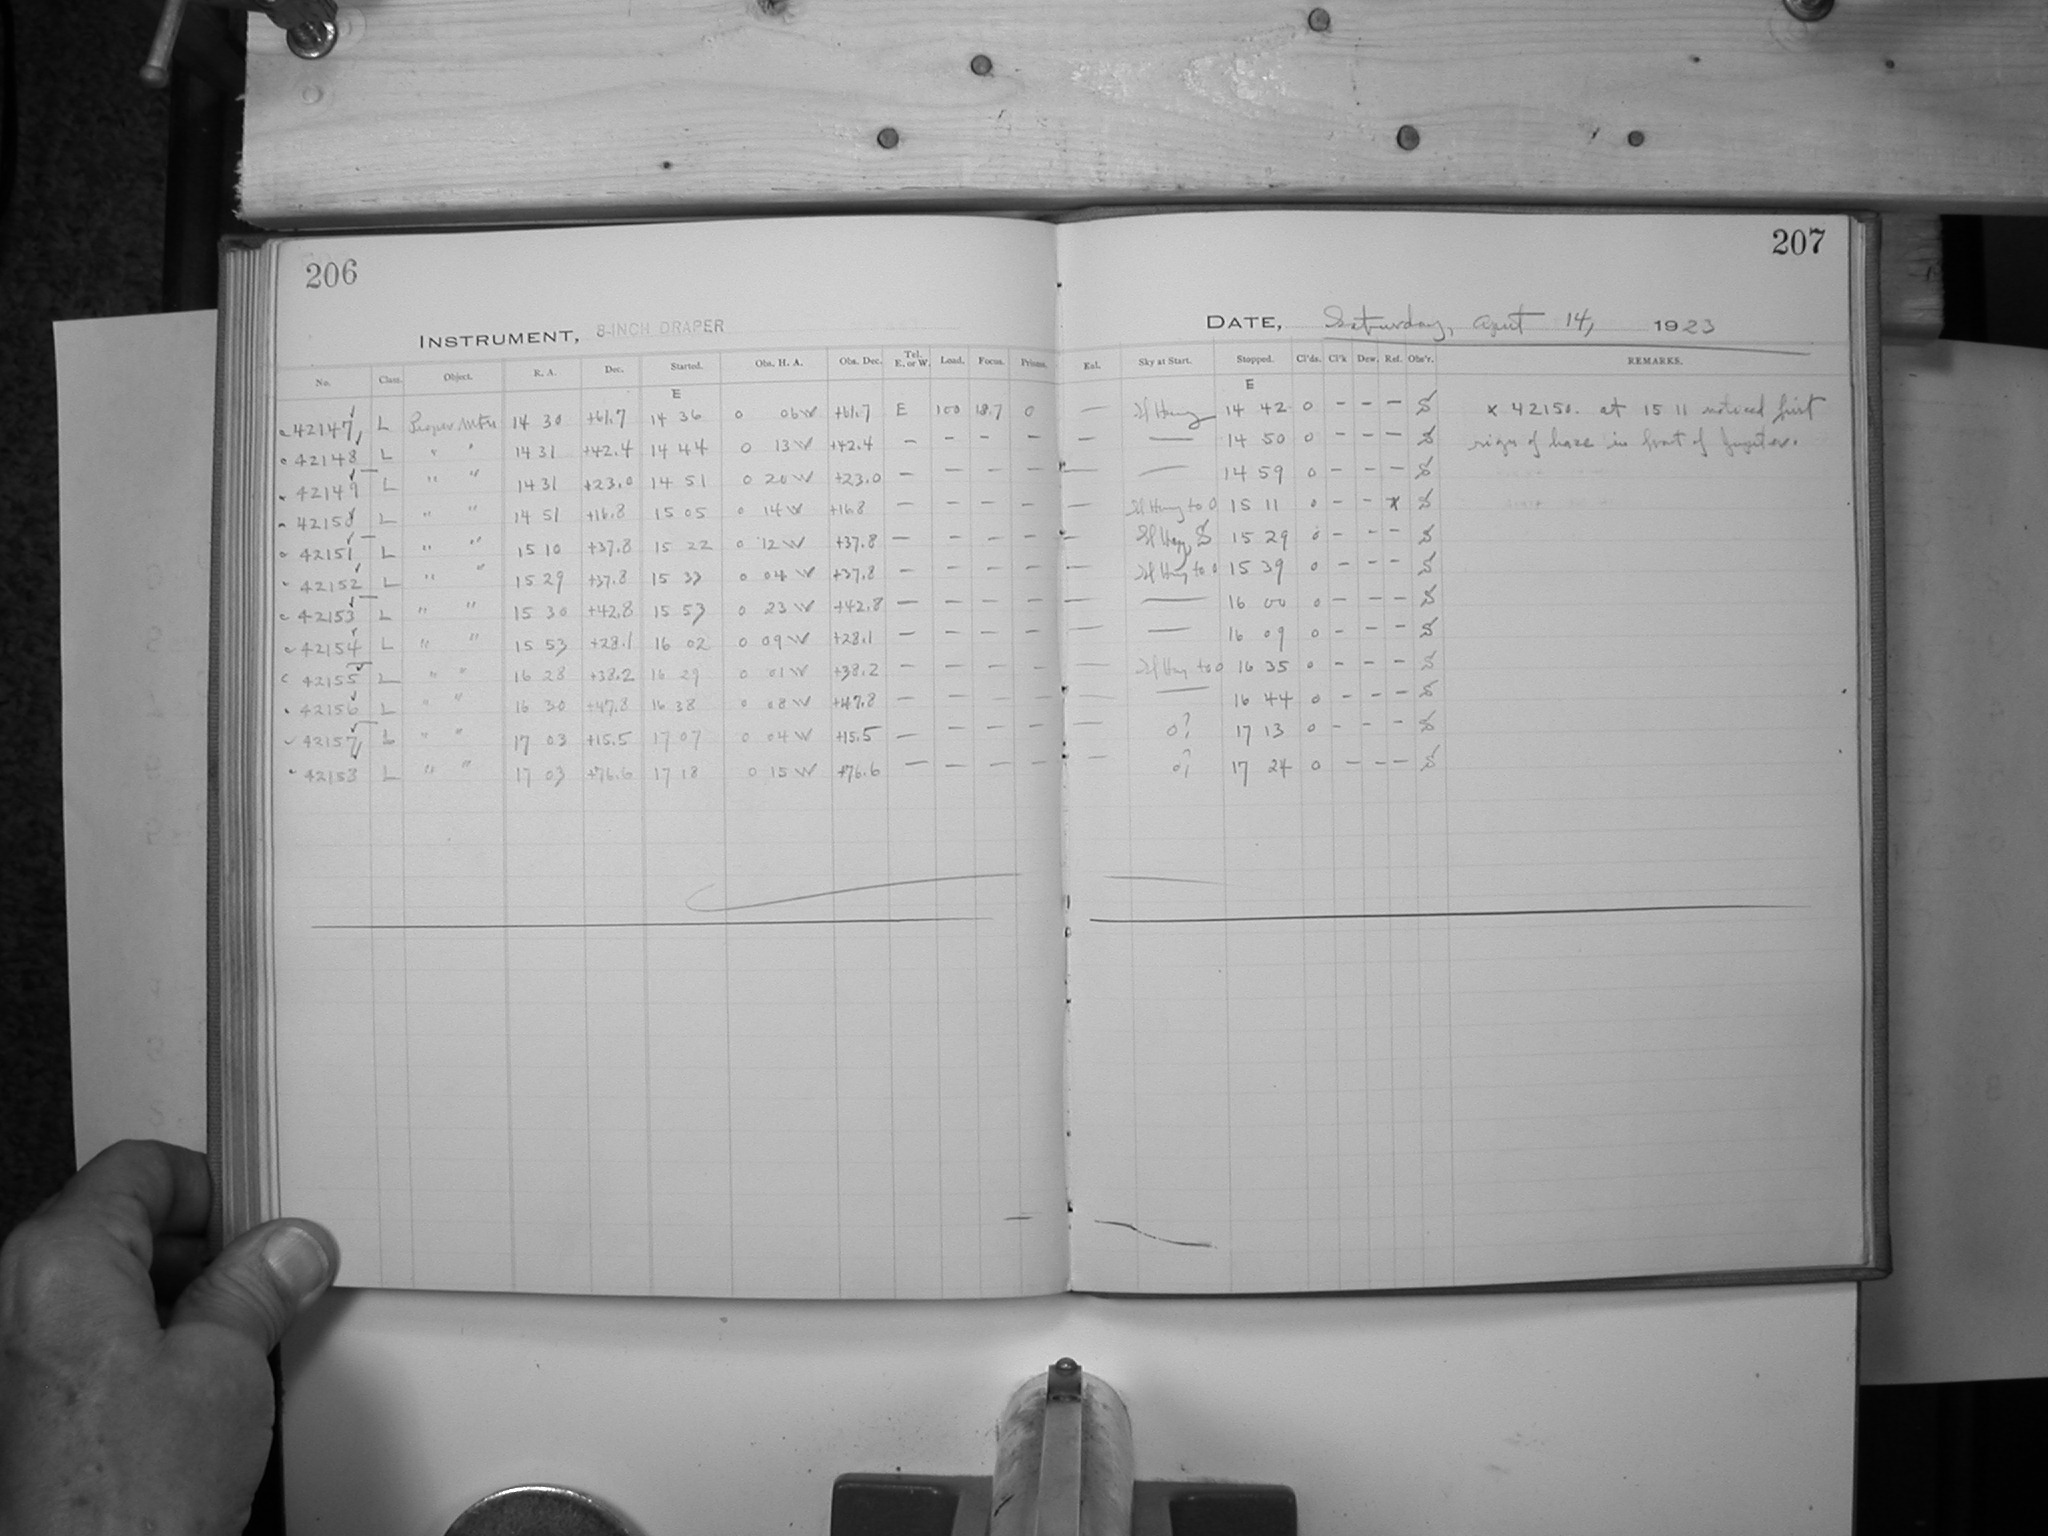 206
INSTRUMENT, 8-INCH DRAPER
No. Class. Object. R. A. Dec. Started. Obs. H. A. Obs. Dec. Tel. E. or W. Load. Focus. Prisms.
E
42147 L Proper Mtn 14 30 +61.7 14 36 0 06 W +61.7 E 100 18.7 0
42148 L " " 14 31 +42.4 14 44 0 13 W +42.4 — — — —
42149 L " " 14 31 +23.0 14 51 0 20 W +23.0 — — — —
42150 L " " 14 51 +16.8 15 05 0 14 W +16.8 — — — —
42151 L " " 15 10 +37.8 15 22 0 12 W +37.8 — — — —
42152 L " " 15 29 +37.8 15 33 0 04 W +37.8 — — — —
42153 L " " 15 30 +42.8 15 53 0 23 W +42.8 — — — —
42154 L " " 15 53 +28.1 16 02 0 09 W +28.1 — — — —
42155 L " " 16 28 +38.2 16 29 0 01 W +38.2 — — — —
42156 L " " 16 30 +47.8 16 38 0 08 W +47.8 — — — —
42157 L " " 17 03 +15.5 17 07 0 04 W +15.5 — — — —
L " " 17 03 +76.6 17 18 0 15 W +76.6 — — — —
207
DATE, Saturday, April 14, 1923
Exl. Sky at Start. Stopped. Cl'ds. Cl'k Dew. Ref. Obs'r. REMARKS.
E
— 14 42 0 — — — S x 42150. at 15 11 noticed first
— — 14 50 0 — — — S sign of haze in front of Jupiter.
— — 14 59 0 — — — S
— to 0 15 11 0 — — x S
— 15 29 0 — — — S
— to 0 15 39 0 — — — S
— — 16 00 0 — — — S
— — 16 09 0 — — — S
— to 0 16 35 0 — — — S
— — 16 44 0 — — — S
— 0? 17 13 0 — — — S
— 0? 17 24 0 — — — S